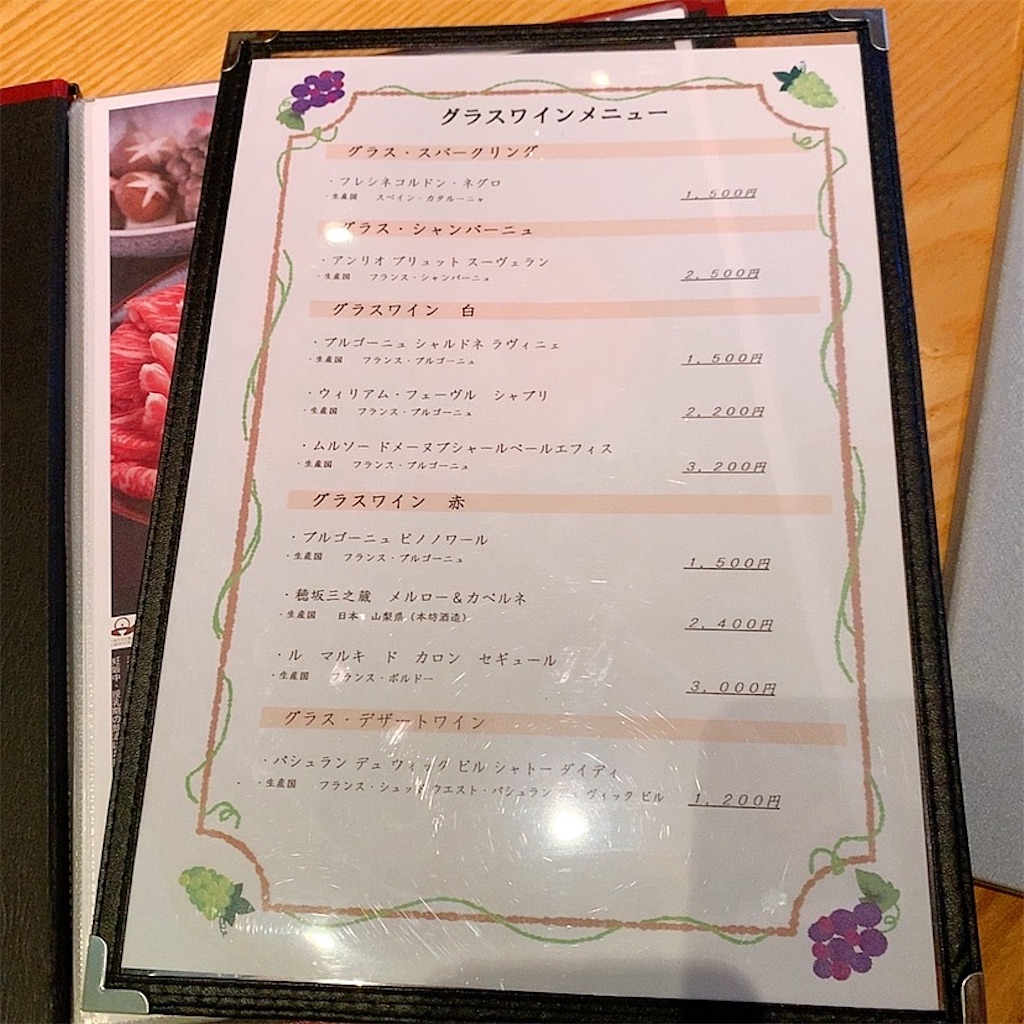 グラスワインメニュー
グラス・スパークリング
・フレシネコルドン・ネグロ
・生産国 スペイン・カタルーニャ 1,500円
グラス・シャンパーニュ
・アンリオ ブリュット スーヴェラン
・生産国 フランス・シャンパーニュ 2,500円
グラスワイン 白
・ブルゴーニュ シャルドネ ラヴィニェ
・生産国 フランス・ブルゴーニュ 1,500円
・ウィリアム・フェーヴル シャブリ
・生産国 フランス・ブルゴーニュ 2,200円
・ムルソー ドメーヌブシャールペールエフィス
・生産国 フランス・ブルゴーニュ 3,200円
グラスワイン 赤
・ブルゴーニュ ピノノワール
・生産国 フランス・ブルゴーニュ 1,500円
・穂坂三之蔵 メルロー＆カベルネ
・生産国 日本 山梨県（本坊酒造） 2,400円
・ル マルキ ド カロン セギュール
・生産国 フランス・ボルドー 3,000円
グラス・デザートワイン
・パシュラン デュ ヴィック ビル シャトー ダイディ
・生産国 フランス・シュッド ウエスト・パシュラン ヴィック ビル 1,200円